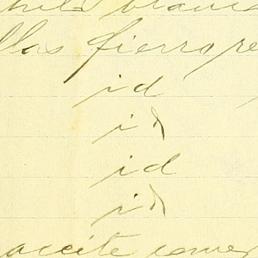 blanca
llas fierro re
id
id
id
id
aceite comer